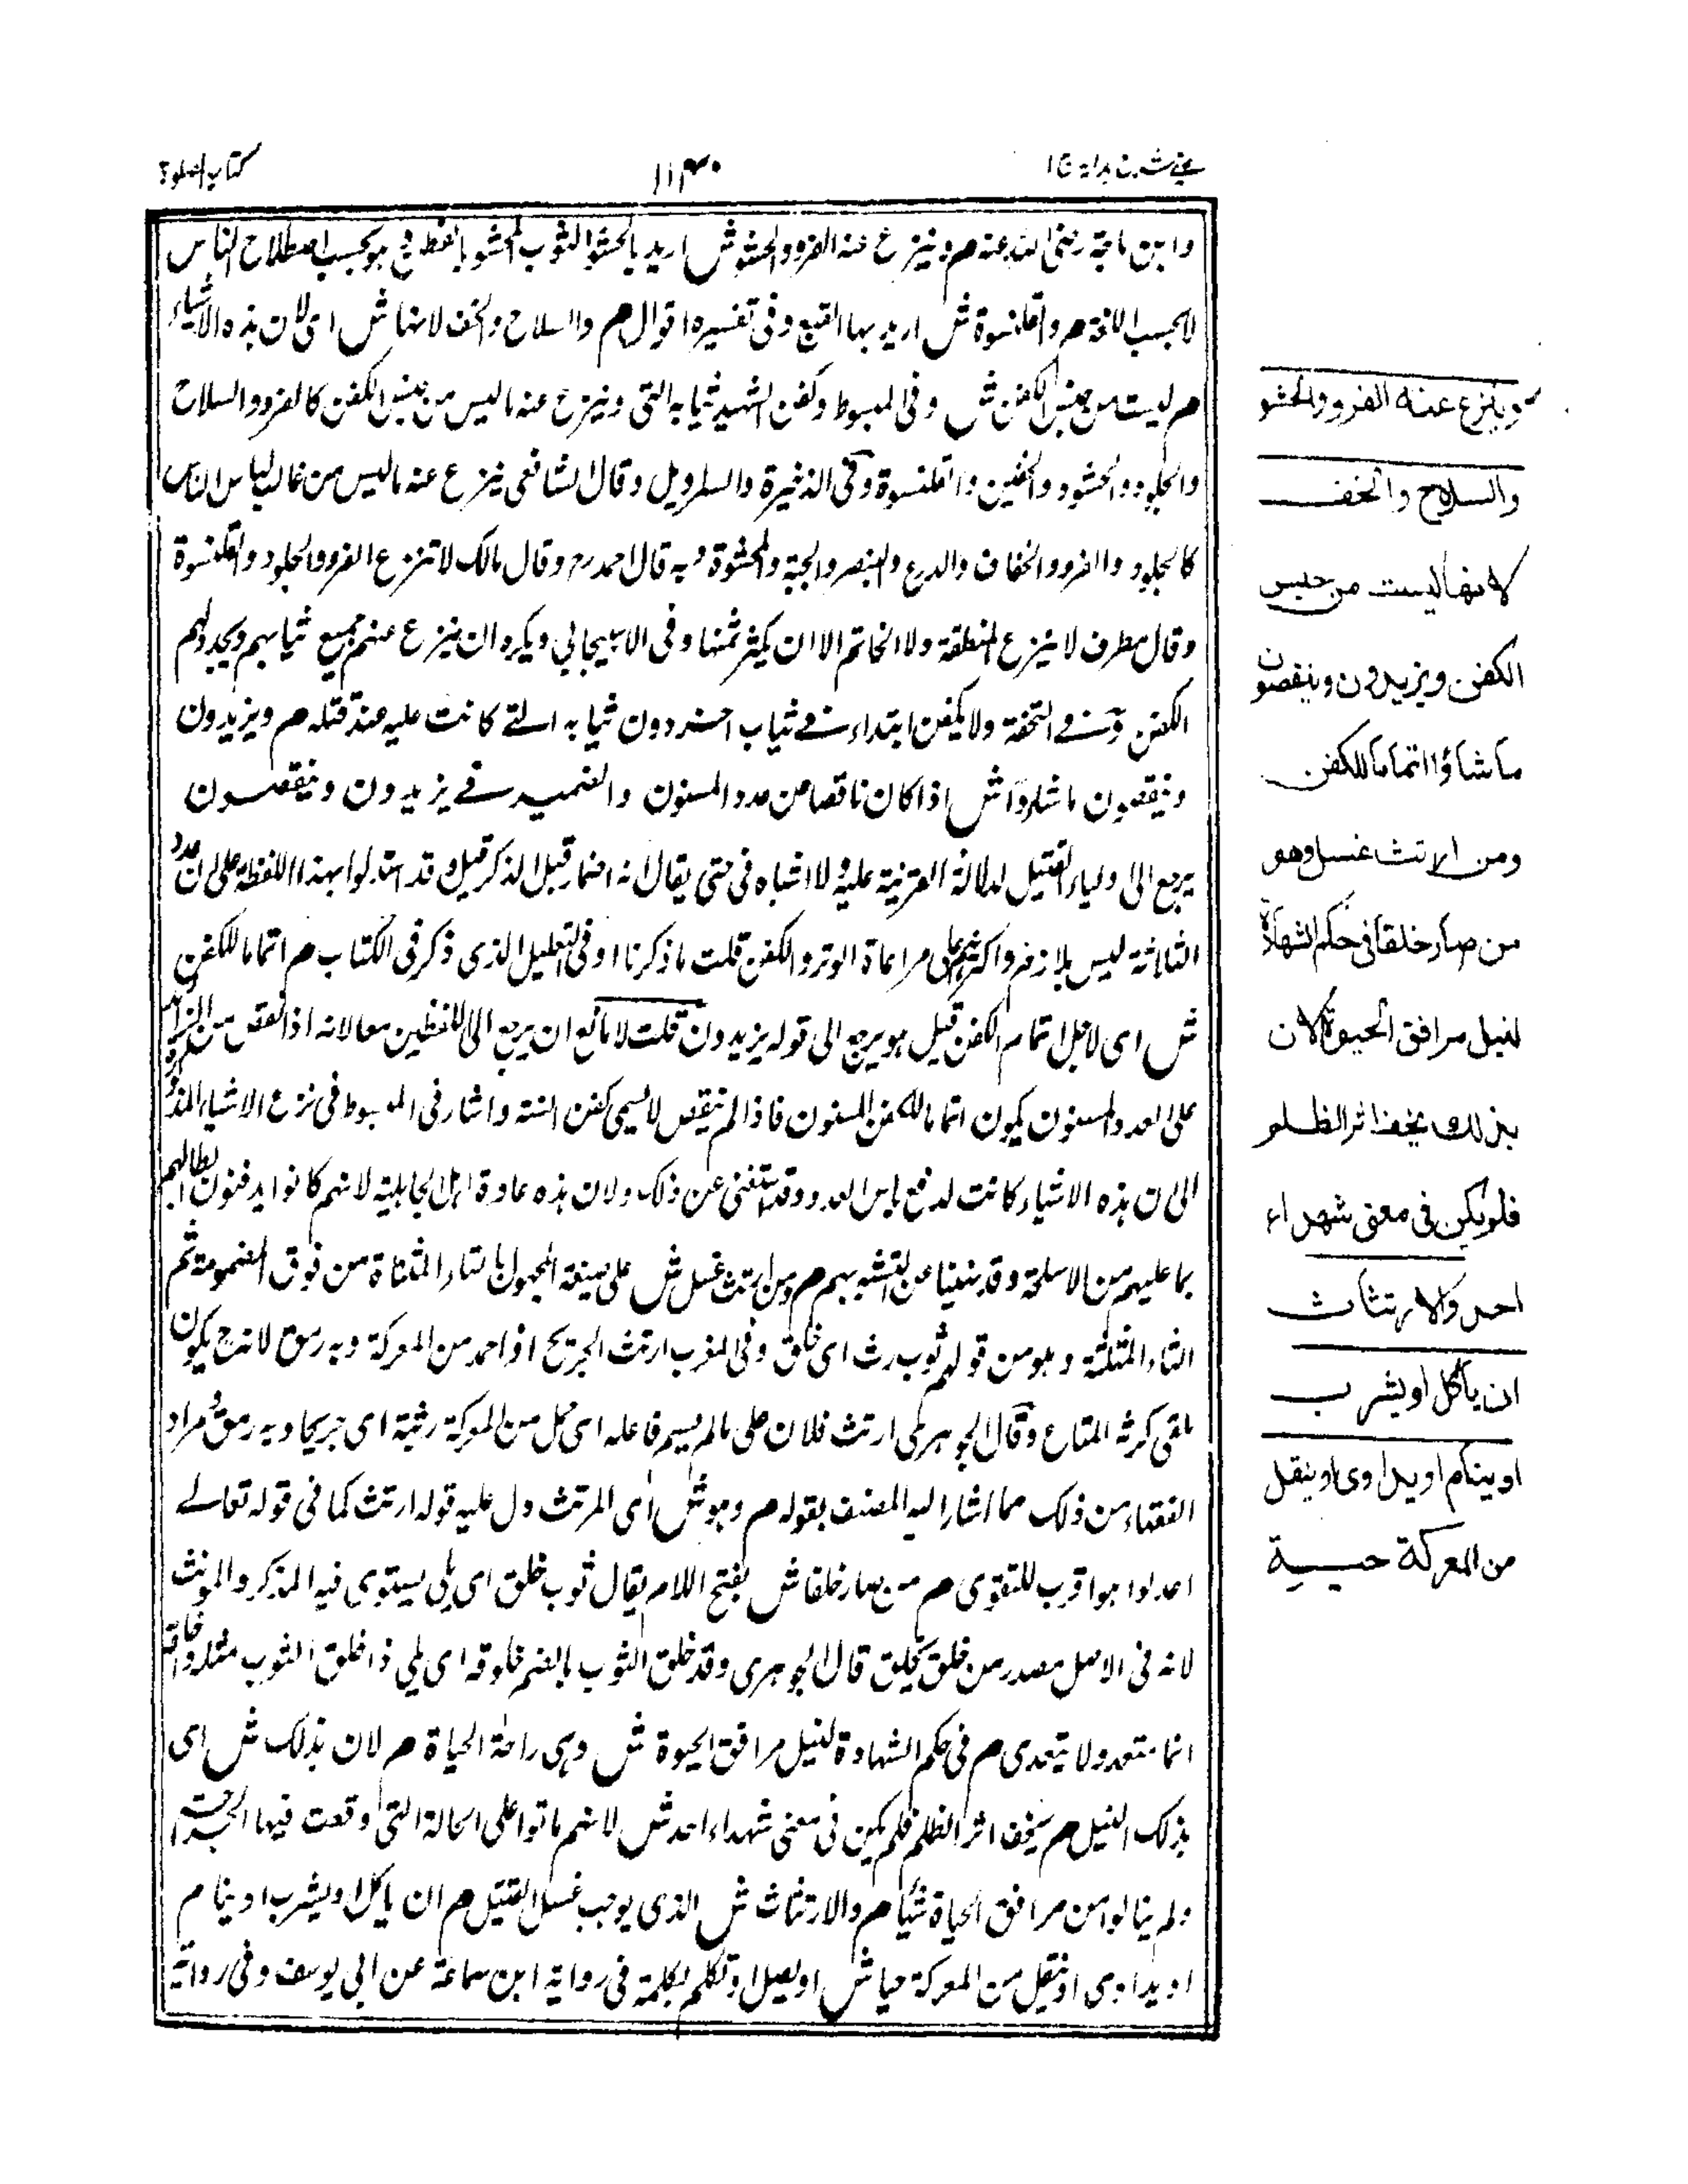 كتاب الصلوة
۱۱۴۰
عيني شرح هداية ج ۱
وابن ماجة رضى الله عنه م وينزع عنه الفرو والحشو ش اريد بالحشو الثوب المحشو بالقطن وهو بحسب اصطلاح الناس
لا بحسب اللغة م والقلنسوة ش اريد بها القبع وفى تفسيره اقوال م والسلاح والخف لانها ش اى لان هذه الاشياء
م ليست من جنس الكفن ش وفى المبسوط وكفن الشهيد ثيابه التى وينزع عنه ما ليس من جنس الكفن كالفرو والسلاح
والجلود والحشو والخفين والقلنسوة وفى الذخيرة والسراويل وقال الشافعى ينزع عنه ما ليس من غالب لباس الناس
كالجلود والفرو والخفاف والدرع والجبة والمحشوة وبه قال احمد رح وقال مالك لا تنزع الفرو والجلود والقلنسوة
وقال مطرف لا ينزع المنطقة ولا الخاتم الا ان يكثر ثمنها وفى الاسبيجابي ويكره ان ينزع عنهم جميع ثيابهم ويجدد لهم
الكفن وفي التحفة ولا يكفن ابتداء في ثياب اخر دون ثيابه التے كانت عليه عند قتله م ويزيدون
وينقصون ما شاؤا ش اذا كان ناقصا من عدد المسنون والضمير فے يزيدون وينقصون
يرجع الى اولياء القتيل لدلالة القرينة عليه ولا اشباه فى حتى يقال انه اضمار قبل الذكر قيل وقد استدلوا بهذا اللفظة على ان عدد
الثلاثة ليس بلازم واكثرهم على مراعاة الوتر والكفن قلت ما ذكرنا اوفى التعليل الذى ذكر فى الكتاب م اتماما للكفن
ش اى لاجل اتمام الكفن قيل هو يرجع الى قوله يزيدون قلت لا مانع ان يرجع الى اللفظين معا لانه اذا نقص من الزائد
على العدد المسنون يكون اتماما للكفن المسنون فاذا لم ينقص لا يسمى كفن السنة واشار فى المبسوط فى نزع الاشياء المذكورة
الى ان هذه الاشياء كانت لدفع باس العدو وقد استغنى عن ذلك ولان هذه عادة اهل الجاهلية لانهم كانوا يدفنون ابطالهم
بما عليهم من الاسلحة وقد نهينا عن التشبه بهم م ومن ارتث غسل ش على صيغة المجهول بالتاء المثناة من فوق المضمومة ثم
الثاء المثلثة وهو من قولهم ثوب رث اى خلق وفى المغرب ارتث الجريح اذا حمد من المعركة وبه رمق لانه ح يكون
ملقى كرثة المتاع وقال الجوهري ارتث فلان على ما لم يسم فاعله اى حمل من المعركة رثيثا اى جريحا وبه رمق ومراد
الفقهاء من ذلك مما اشار اليه المصنف بقوله م وهو ش اى المرتث دل عليه قوله ارتث كما فى قوله تعالے
اعدلوا هو اقرب للتقوى م من صار خلقا ش بفتح اللام يقال ثوب خلق اى بلى يستوى فيه المذكر والمونث
لانه فى الاصل مصدر من خلق يخلق قال الجوهرى وقد خلق الثوب بالضم خلوقة اى بلي ذا خلق الثوب مثله
انما متعد ولا يتعدى م فى حكم الشهادة لنيل مرافق الحيوة ش وهى راحة الحياة م لان بذلك ش اى
بذلك النيل م يخف اثر الظلم فلم يكن فى معنى شهداء احد ش لانهم ماتوا على الحالة التى وقعت فيها الجراحة
ولم ينالوا من مرافق الحياة شيئا م والارتثاث ش الذى يوجب غسل القتيل م ان ياكل او يشرب او ينام
او يداوى او ينقل من المعركة حيا ش او يصل او تكلم بكلمة فى رواية ابن سماعة عن ابى يوسف وفى رواية
وينزع عنه الفرو والحشو
والسلاح والخف
لانها ليست من جنس
الكفن ويزيدون وينقصون
ما شاؤا اتماما للكفن
ومن ارتث غسل وهو
من صار خلقا فى حكم الشهادة
لنيل مرافق الحيوة لان
بذلك يخف اثر الظلم
فلم يكن فى معنى شهداء
احد والارتثاث
ان يأكل او يشرب
او ينام او يداوى او ينقل
من المعركة حيا